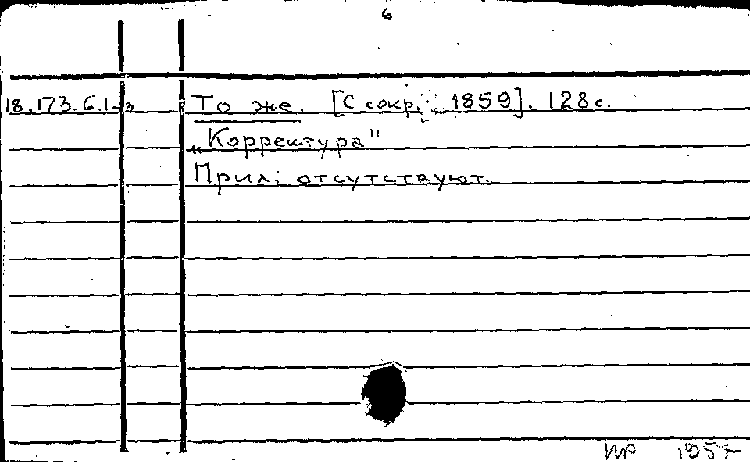 6
18.173.6.1-3 То же. [С сокр., 1859]. 128 с.
„Корректура"
Прил. отсутствуют.
1957